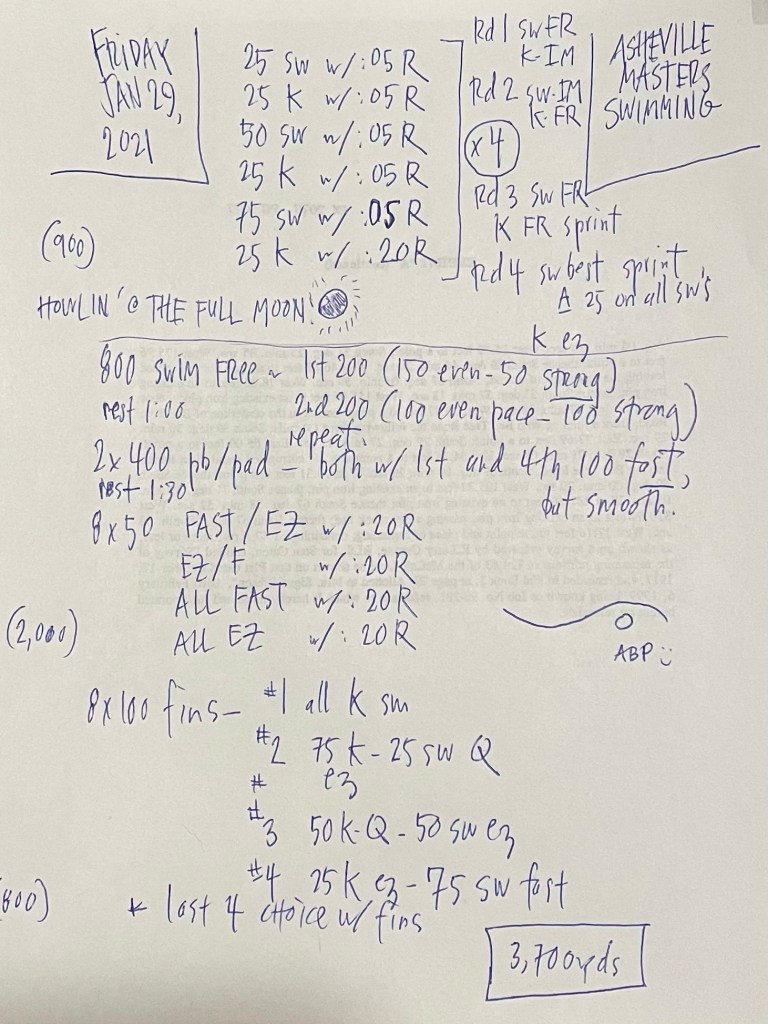 FRIDAY
JAN 29,
2021
25 SW w/:05 R
25 K w/:05 R
50 SW w/:05 R
25 K w/:05 R
75 SW w/:05 R
25 K w/:20 R
(900)
Rd 1 SW FR
K-IM
Rd 2 SW-IM
K-FR
x 4
Rd 3 SW FR
K FR sprint
Rd 4 SW best sprint
A 25 on all SW's
K ez
ASHEVILLE
MASTERS
SWIMMING
HOWLIN' @ THE FULL MOON!
800 SWIM FREE ~ 1st 200 (150 even-50 strong)
rest 1:00 2nd 200 (100 even pace-100 strong)
repeat.
2x400 pb/pad - both w/ 1st and 4th 100 fast,
rest 1:30 but smooth.
8x50 FAST/EZ w/:20R
EZ/F w/:20R
ALL FAST w/:20R
ALL EZ w/:20R
(2,000)
ABP
8x100 fins- #1 all K sm
#2 75 K-25 SW Q
# ez
#3 50K-Q-50 SW ez
#4 25K ez-75 SW fast
800)
* last 4 choice w/ fins
3,700yds